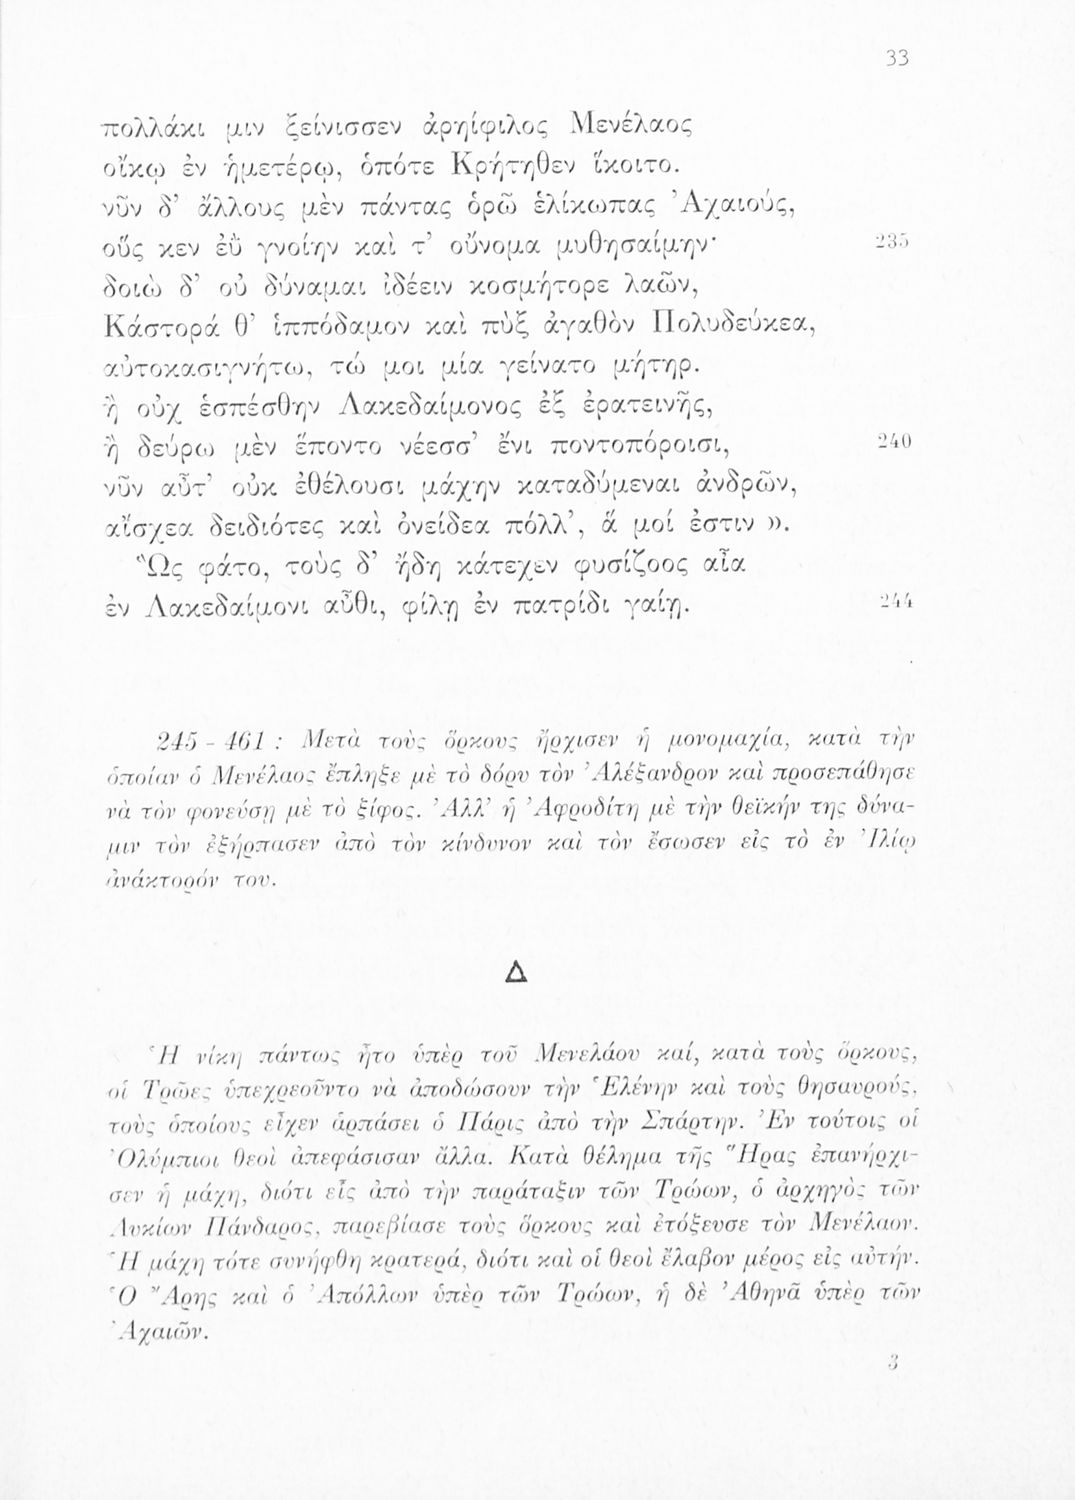 33
πολλάκι μιν ξείνισσεν ἀρηίφιλος Μενέλαος
οἴκῳ ἐν ἡμετέρῳ, ὁπότε Κρήτηθεν ἵκοιτο.
νῦν δ’ ἄλλους μὲν πάντας ὁρῶ ἑλίκωπας Ἀχαιούς,
οὕς κεν ἐῢ γνοίην καὶ τ’ οὔνομα μυθησαίμην· 235
δοιὼ δ’ οὐ δύναμαι ἰδέειν κοσμήτορε λαῶν,
Κάστορά θ’ ἱππόδαμον καὶ πὺξ ἀγαθὸν Πολυδεύκεα,
αὐτοκασιγνήτω, τώ μοι μία γείνατο μήτηρ.
ἢ οὐχ ἑσπέσθην Λακεδαίμονος ἐξ ἐρατεινῆς,
ἢ δεύρω μὲν ἕποντο νέεσσ’ ἔνι ποντοπόροισι, 240
νῦν αὖτ’ οὐκ ἐθέλουσι μάχην καταδύμεναι ἀνδρῶν,
αἴσχεα δειδιότες καὶ ὀνείδεα πόλλ’, ἅ μοί ἐστιν ».
Ὣς φάτο, τοὺς δ’ ἤδη κάτεχεν φυσίζοος αἶα
ἐν Λακεδαίμονι αὖθι, φίλῃ ἐν πατρίδι γαίῃ. 244
245 - 461 : Μετὰ τοὺς ὅρκους ἤρχισεν ἡ μονομαχία, κατὰ τὴν
ὁποίαν ὁ Μενέλαος ἔπληξε μὲ τὸ δόρυ τὸν Ἀλέξανδρον καὶ προσεπάθησε
νὰ τὸν φονεύσῃ μὲ τὸ ξίφος. Ἀλλ’ ἡ Ἀφροδίτη μὲ τὴν θεϊκήν της δύνα-
μιν τὸν ἐξήρπασεν ἀπὸ τὸν κίνδυνον καὶ τὸν ἔσωσεν εἰς τὸ ἐν Ἰλίῳ
ἀνάκτορόν του.
Δ
Ἡ νίκη πάντως ἦτο ὑπὲρ τοῦ Μενελάου καί, κατὰ τοὺς ὅρκους,
οἱ Τρῶες ὑπεχρεοῦντο νὰ ἀποδώσουν τὴν Ἑλένην καὶ τοὺς θησαυρούς,
τοὺς ὁποίους εἶχεν ἁρπάσει ὁ Πάρις ἀπὸ τὴν Σπάρτην. Ἐν τούτοις οἱ
Ὀλύμπιοι θεοὶ ἀπεφάσισαν ἄλλα. Κατὰ θέλημα τῆς Ἥρας ἐπανήρχι-
σεν ἡ μάχη, διότι εἷς ἀπὸ τὴν παράταξιν τῶν Τρώων, ὁ ἀρχηγὸς τῶν
Λυκίων Πάνδαρος, παρεβίασε τοὺς ὅρκους καὶ ἐτόξευσε τὸν Μενέλαον.
Ἡ μάχη τότε συνήφθη κρατερά, διότι καὶ οἱ θεοὶ ἔλαβον μέρος εἰς αὐτήν.
Ὁ Ἄρης καὶ ὁ Ἀπόλλων ὑπὲρ τῶν Τρώων, ἡ δὲ Ἀθηνᾶ ὑπὲρ τῶν
Ἀχαιῶν.
3